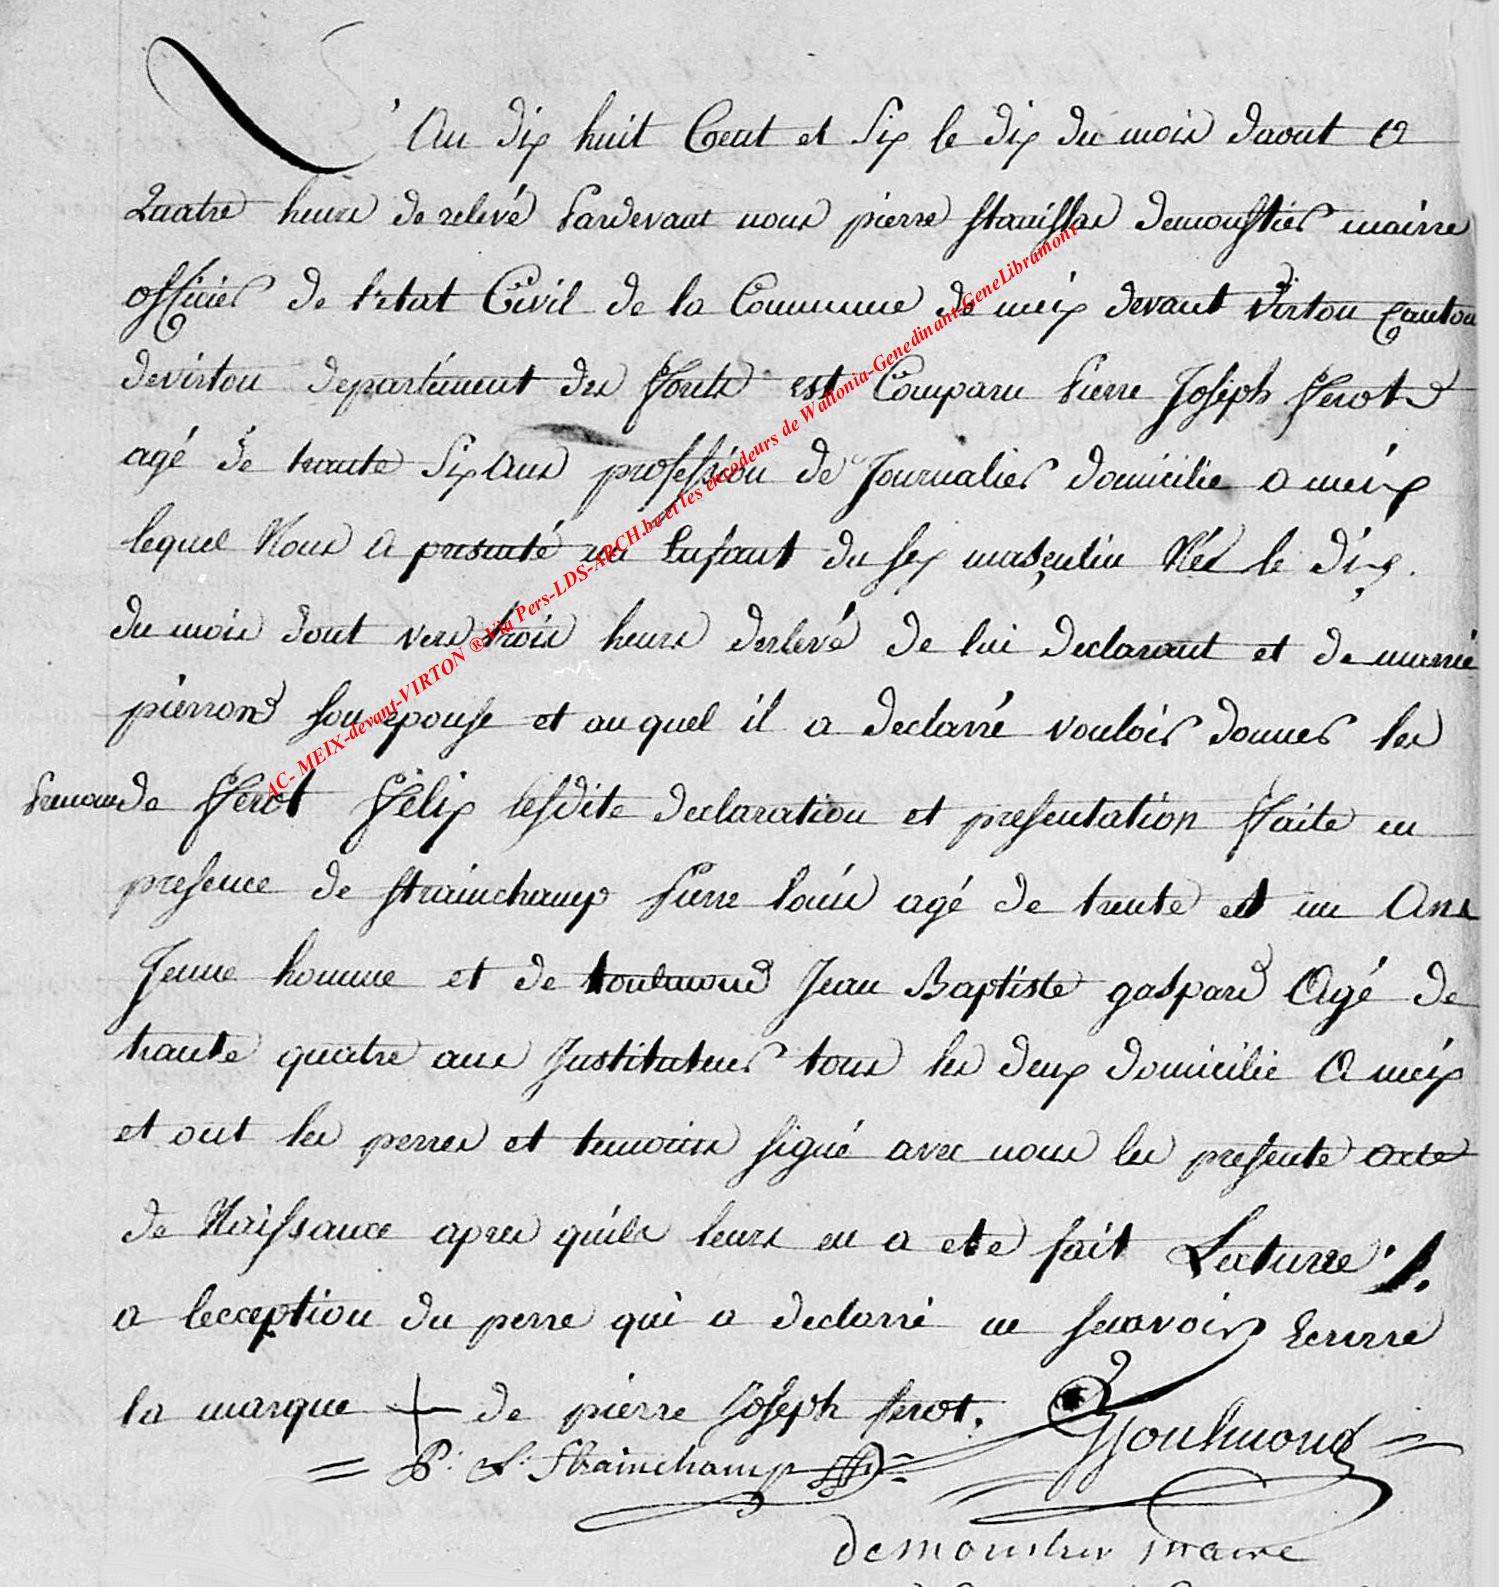 L'An dix huit Cent et Six le dix du mois daout a
Quatre heure de relevé Pardevant nous pierre stanislas demoustier mairre
officier de l'etat Civil de la Commune de meix devant Virton Canton
de virton departement des forets est Comparu Pierre Joseph ferot
agé de trante Six ans profession de Journalier domicilie a meix
lequel Nous a presenté un Enfant du sex masculin Née le dix
du mois dout vers trois heurs derlevé de lui declarant et de marrie
pierrond son epouse et au quel il a declarré vouloir donner les
Prenom de ferot félix lesdite declaration et presentation faite en
presence de strainchamp Pierre louis agé de trente et un Ans
Jeune homme et de toulmond Jean Baptiste gaspard Agé de
trante quatre ans Justituteur tous les deux domicilie a meix
et ont les perres et temoins signé avec nous les presente acte
de Naissance apres quils leurs en a ete fait Lecturre ./.
a lecception du perre qui a declarré ne scavoir Ecrirre
la marque + de pierre Joseph ferot.
P. L. Strainchamp
Toulmond
demoustier maire
AC- MEIX-devant-VIRTON ® Via Pers-LDS-ARCH.be et les encodeurs de Wallonia-Genedinant-GeneLibramont